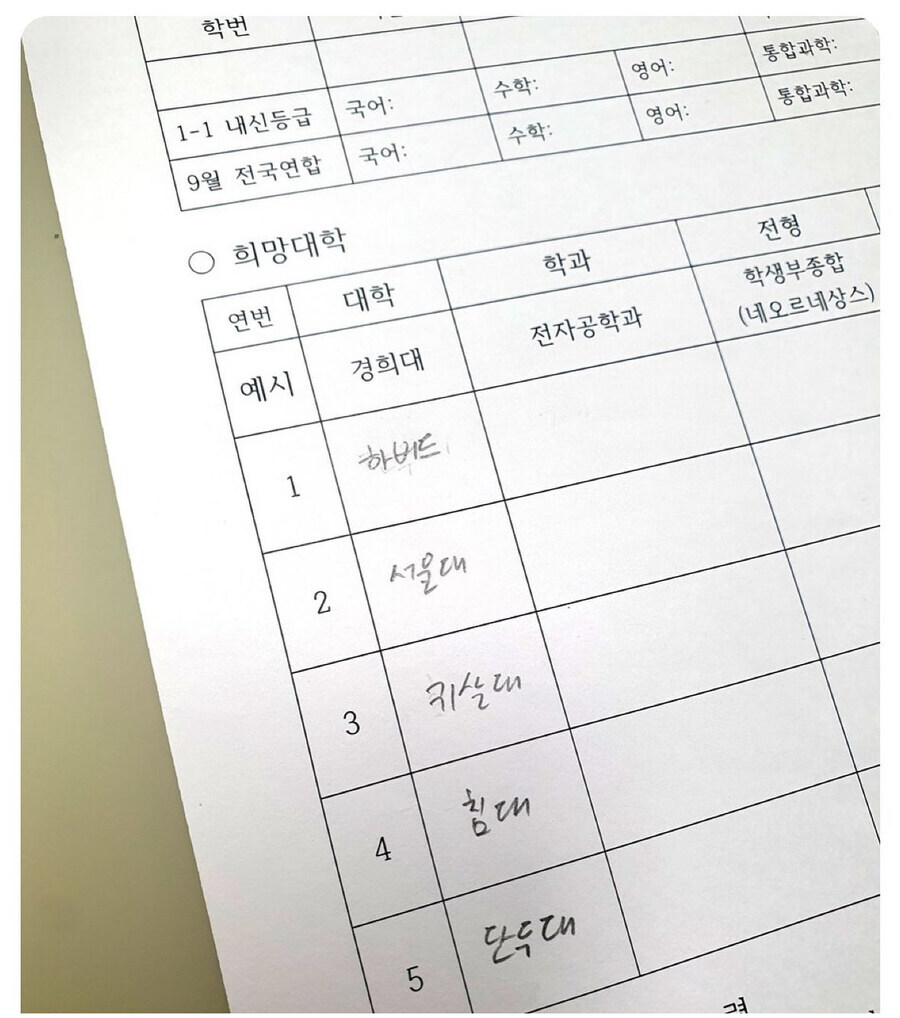 학번
1-1 내신등급 국어: 수학: 영어: 통합과학:
9월 전국연합 국어: 수학: 영어: 통합과학:
○ 희망대학
연번 대학 학과 전형
예시 경희대 전자공학과 학생부종합
(네오르네상스)
1 하버드
2 서울대
3 귀살대
4 침대
5 단두대